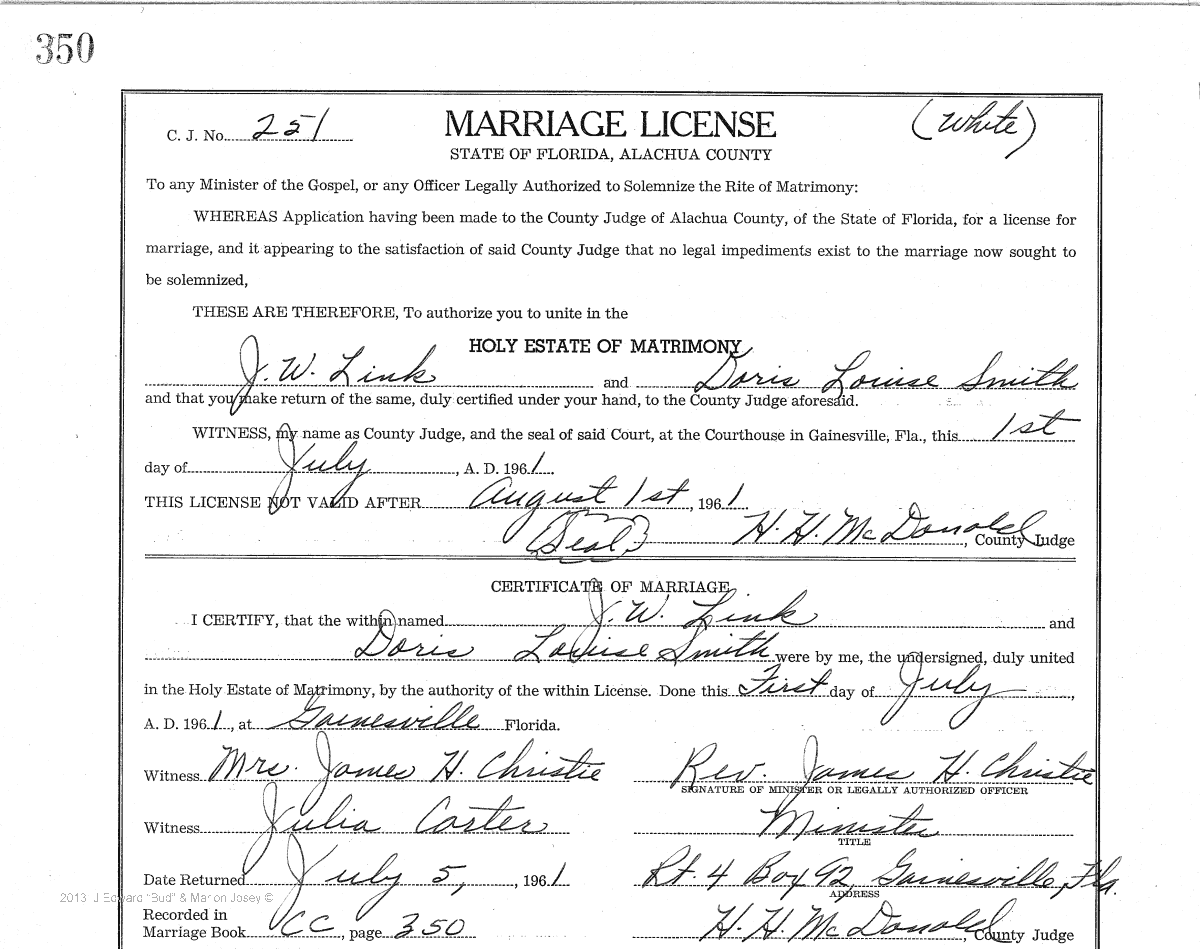 350
C. J. No. 251
MARRIAGE LICENSE
(White)
STATE OF FLORIDA, ALACHUA COUNTY
To any Minister of the Gospel, or any Officer Legally Authorized to Solemnize the Rite of Matrimony:
WHEREAS Application having been made to the County Judge of Alachua County, of the State of Florida, for a license for
marriage, and it appearing to the satisfaction of said County Judge that no legal impediments exist to the marriage now sought to
be solemnized,
THESE ARE THEREFORE, To authorize you to unite in the
HOLY ESTATE OF MATRIMONY
J. W. Link and Doris Louise Smith
and that you make return of the same, duly certified under your hand, to the County Judge aforesaid.
WITNESS, my name as County Judge, and the seal of said Court, at the Courthouse in Gainesville, Fla., this 1st
day of July, A. D. 1961
THIS LICENSE NOT VALID AFTER August 1st, 1961
(Seal) H. H. McDonald, County Judge
CERTIFICATE OF MARRIAGE
I CERTIFY, that the within named J. W. Link and
Doris Louise Smith were by me, the undersigned, duly united
in the Holy Estate of Matrimony, by the authority of the within License. Done this First day of July,
A. D. 1961, at Gainesville Florida.
Witness Mrs. James H. Christie Rev. James H. Christie
SIGNATURE OF MINISTER OR LEGALLY AUTHORIZED OFFICER
Witness Julia Carter Minister
TITLE
Date Returned July 5, , 1961 Rt. 4 Box 92, Gainesville, Fla.
ADDRESS
2013 J Edward "Bud" & Marion Josey ©
Recorded in
Marriage Book CC, page 350 H. H. McDonald, County Judge